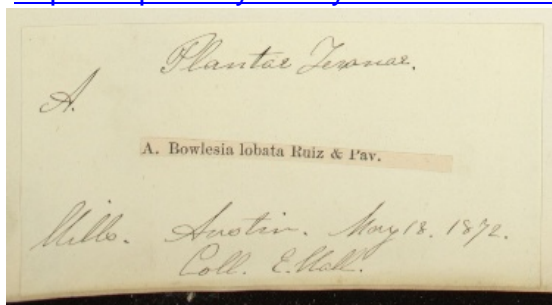 Plantae Texanae.
A.
A. Bowlesia lobata Ruiz & Pav.
Hills. Austin. May 18. 1872.
Coll. E. Hall.